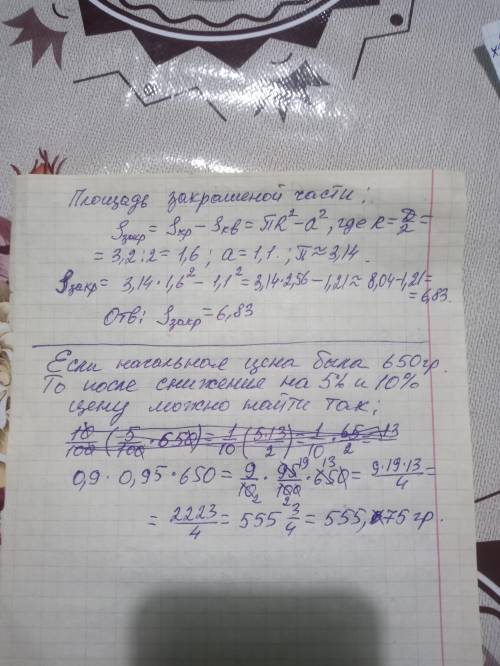 Площадь закрашеной части:
Sзакр = Sкр − Sкв = πR² − a², где R = D/2 =
= 3,2:2 = 1,6; a = 1,1.; π ≈ 3,14.
Sзакр = 3,14·1,6² − 1,1² = 3,14·2,56 − 1,21 ≈ 8,04 − 1,21 =
= 6,83.
Отв: Sзакр = 6,83
Если начальная цена была 650гр.
То после снижение на 5% и 10%
цену можно найти так:
10/100 (5/100 · 650) = 1/10 (5·13/2) = 1/10 · 65/2 = 13
0,9 · 0,95 · 650 = 9/10 · 95/100 · 650 = 9·19·13/4 =
= 2223/4 = 555 3/4 = 555,75 гр.